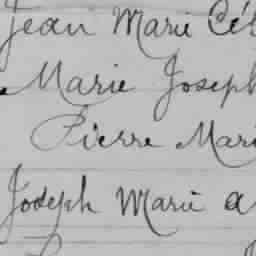 Jean Marie Cél
Marie Joseph
Pierre Mari
Joseph Marie a